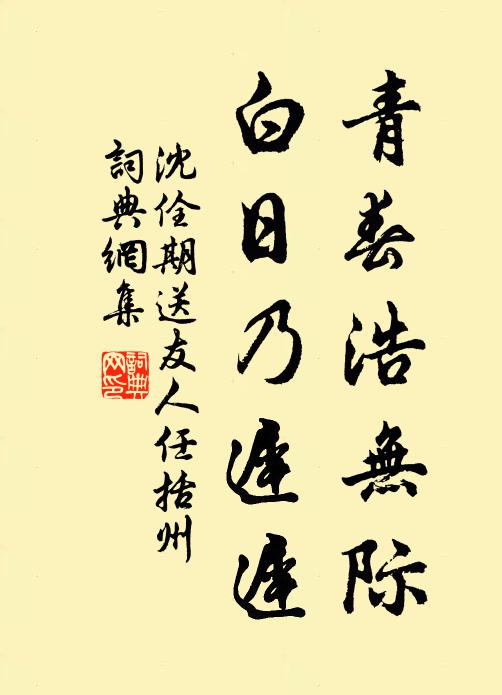 青春浩無際
白日乃遲遲
沈佺期送友人任括州
詞典網集
詞典
网印